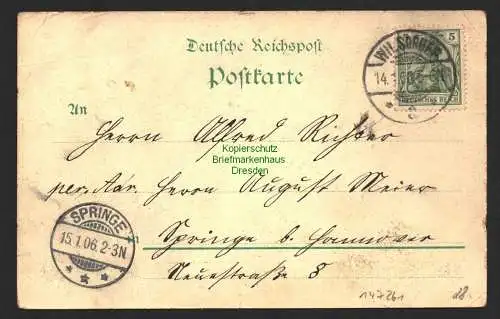 Deutsche Reichspost
Postkarte
WILSDRUFF
14.1.06
5
DEUTSCHES REICH
An
Herrn Alfred Richter
Kopierschutz
Briefmarkenhaus
Dresden
per. Adr. Herrn August Meier
SPRINGE
15.1.06.2-3N
Springe b. Hannover
Neuestraße 8
147261